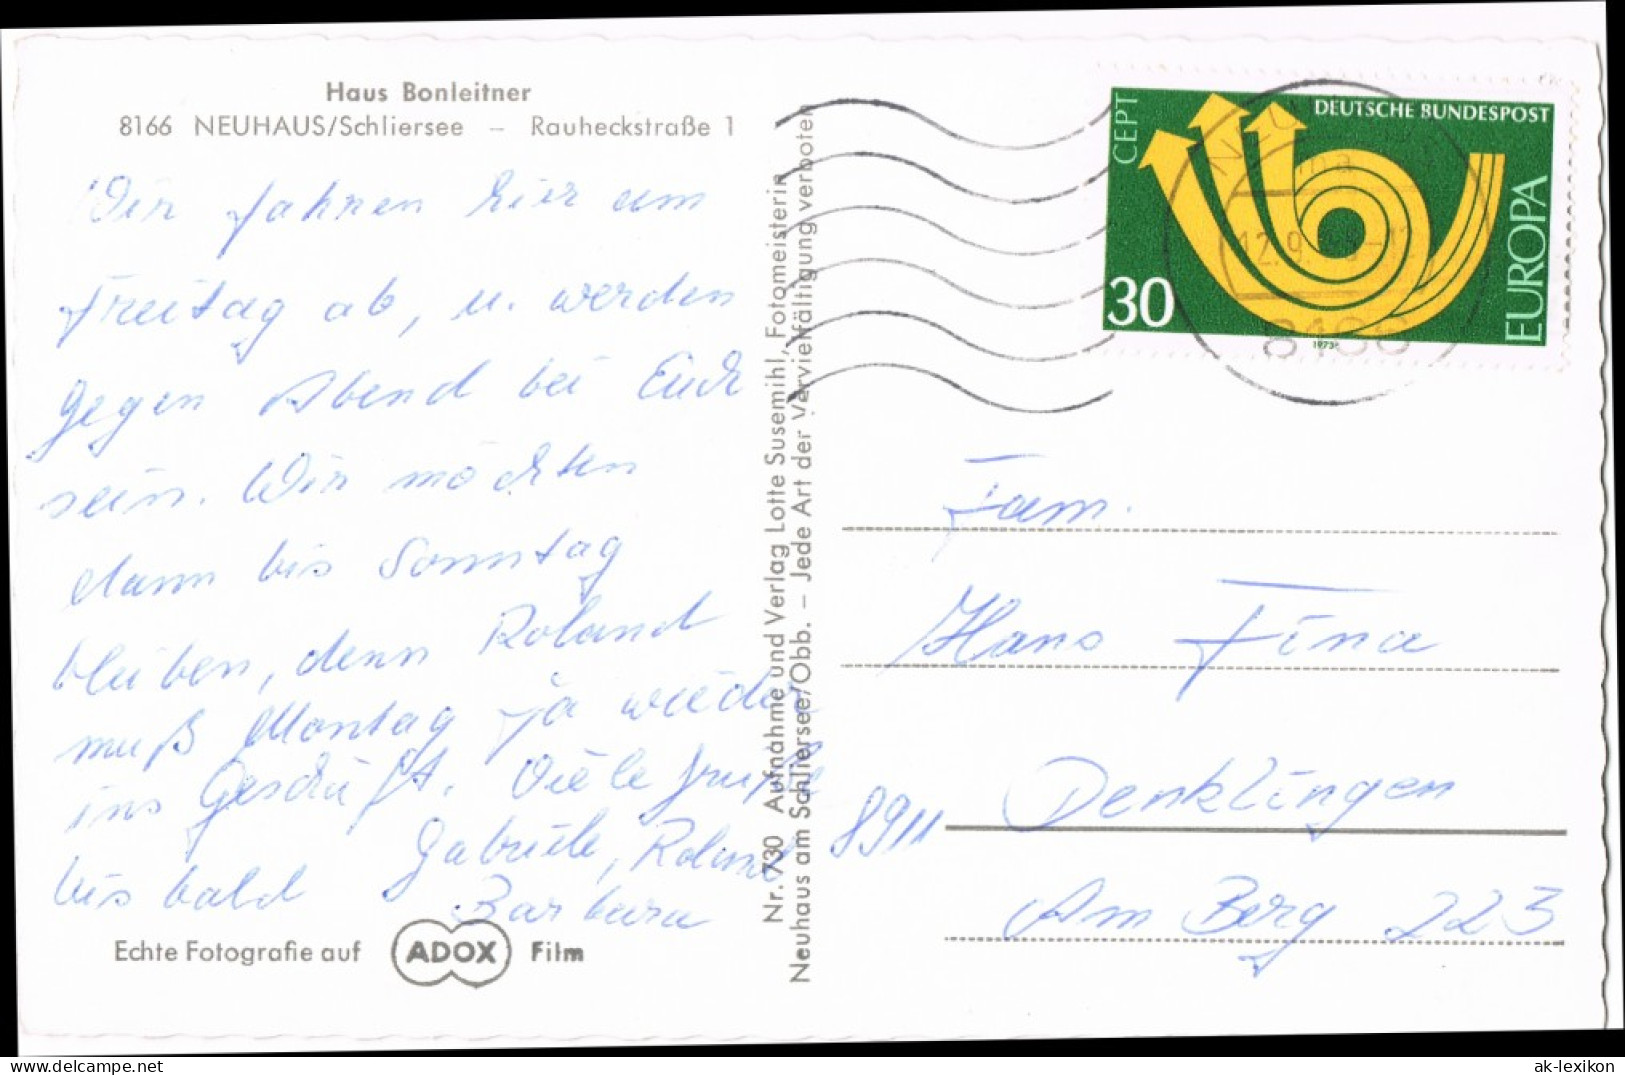 Haus Bonleitner
8166 NEUHAUS/Schliersee – Rauheckstraße 1
Wir fahren hier am
Freitag ab, u. werden
gegen Abend bei Euch
sein. Wir möchten
dann bis Sonntag
bleiben, denn Roland
muß Montag ja wieder
ins Geschäft. Viele Grüße
bis bald Gabriele, Roland
Barbara
Echte Fotografie auf ADOX Film
Nr. 730 Aufnahme und Verlag Lotte Susemihl, Fotomeisterin
Neuhaus am Schliersee/Obb. – Jede Art der Vervielfältigung verboten
CEPT
DEUTSCHE BUNDESPOST
30
EUROPA
1973
12.9.
8166
Fam.
Hans Fina
8911 Denklingen
Am Berg 223
ak-lexikon.com